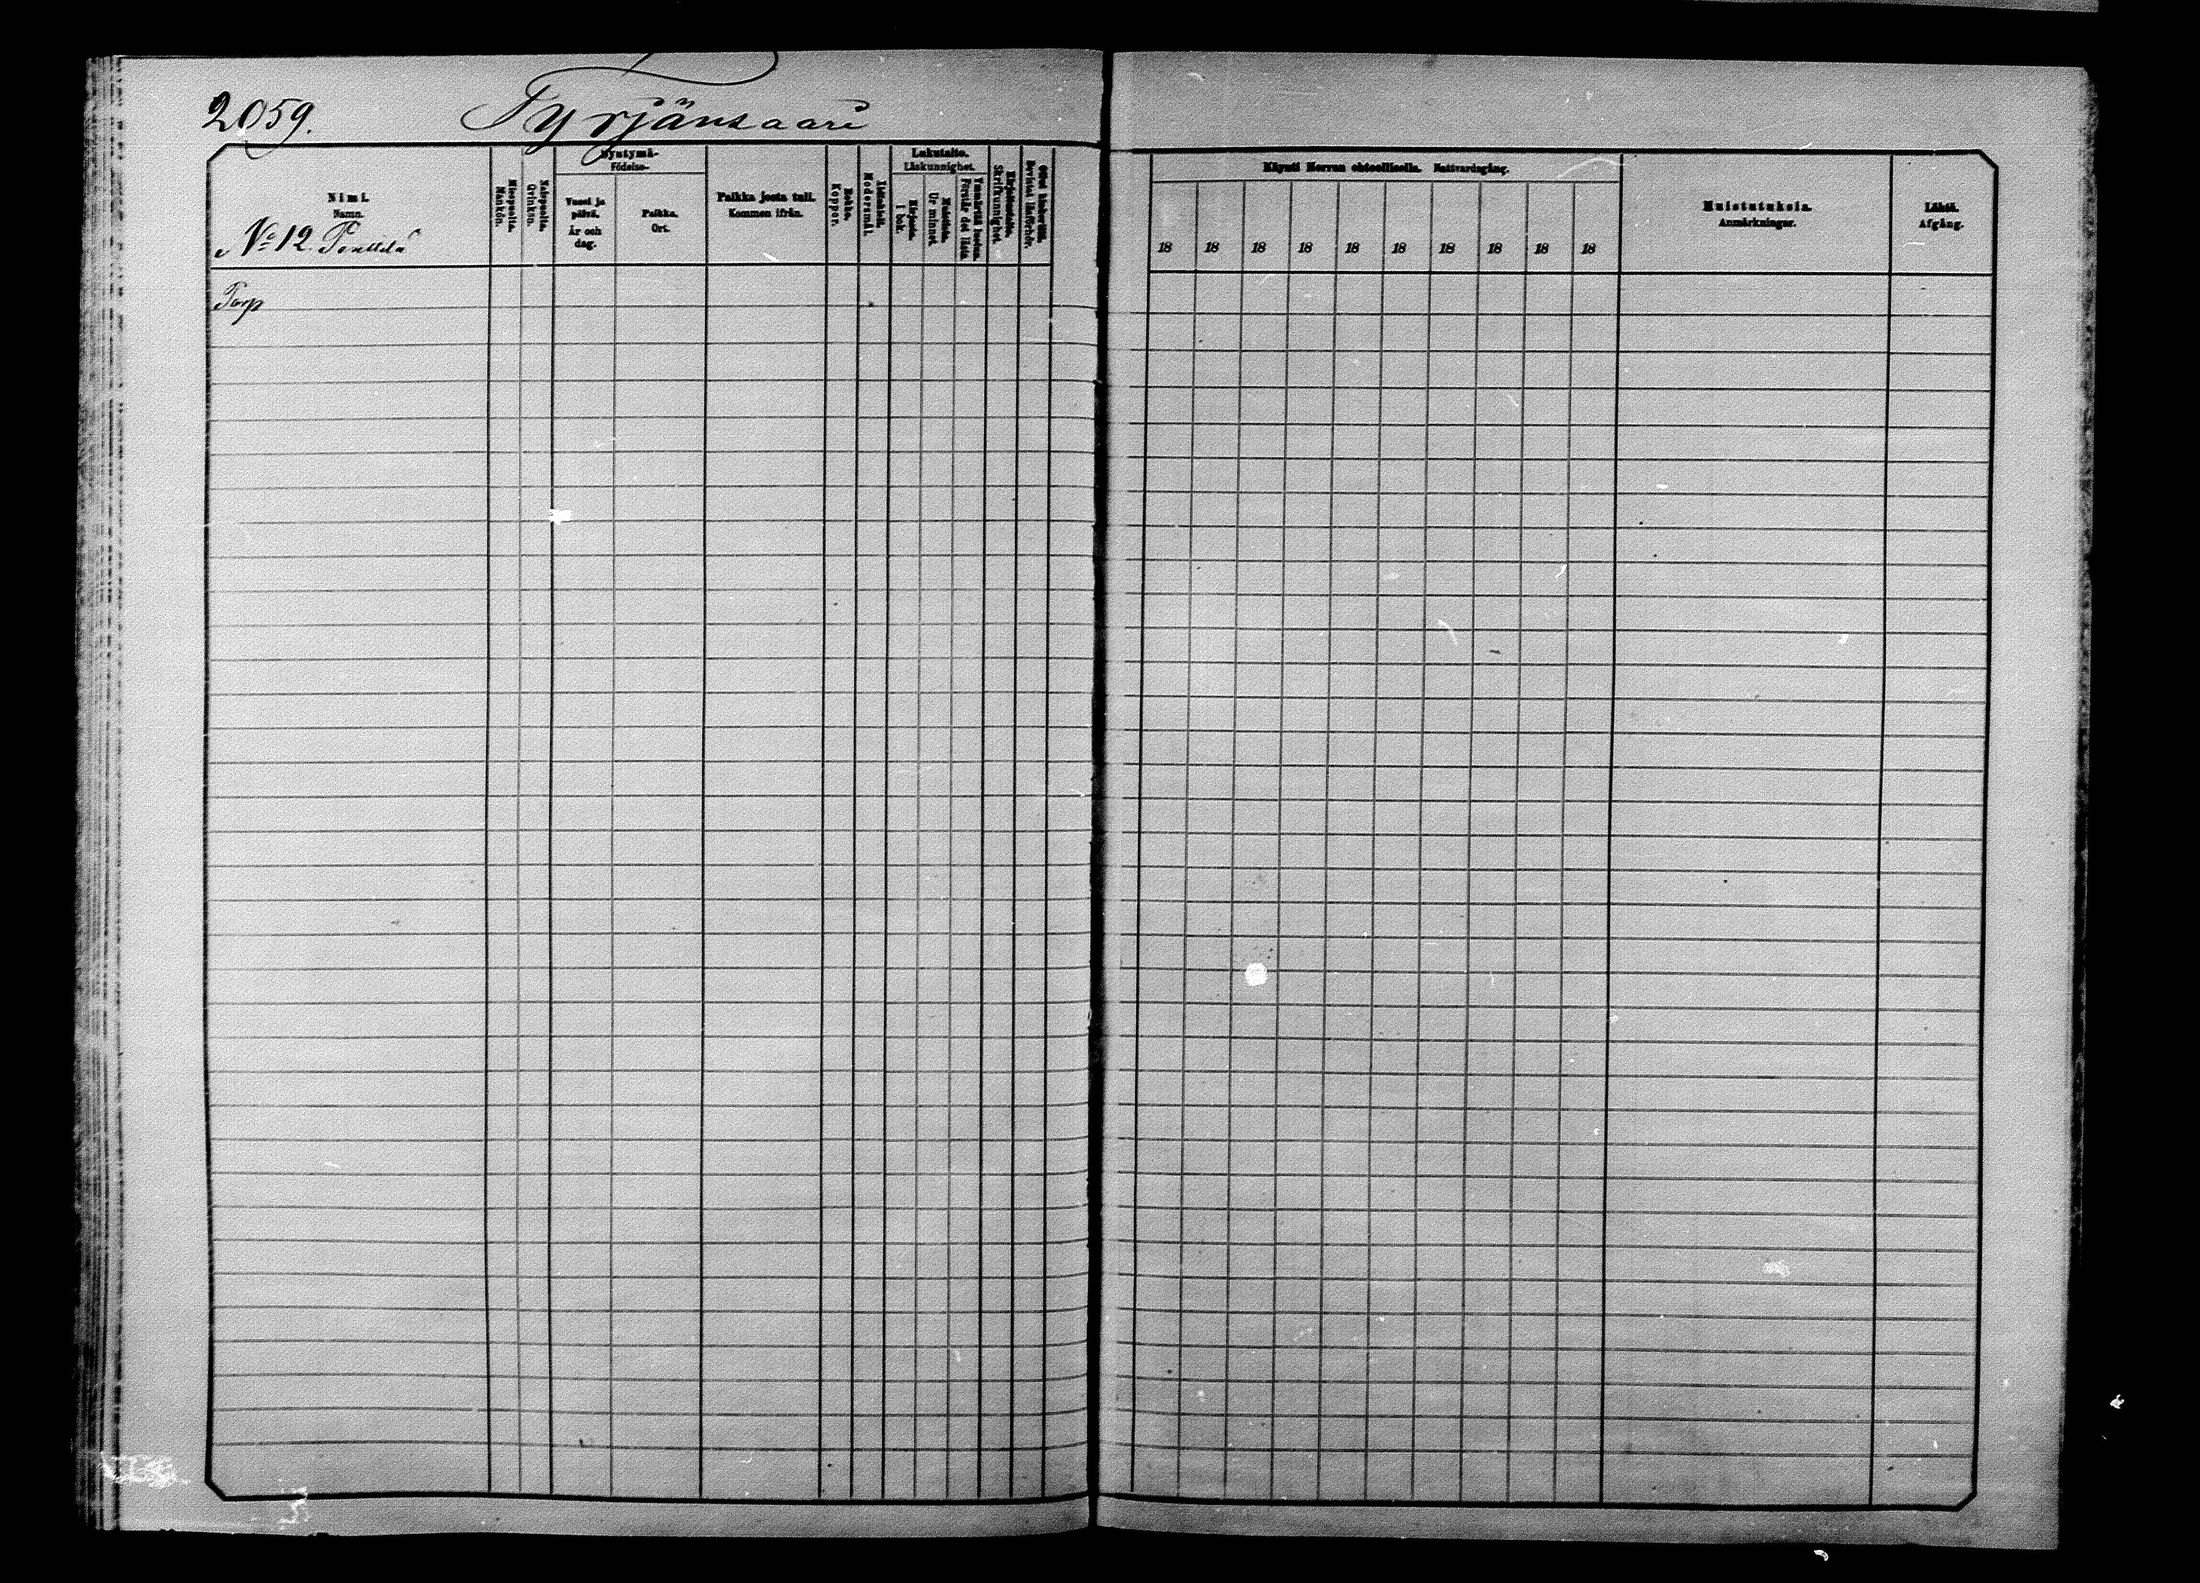 2059. Tyrjänsaari
Nimi.
Namn.
№ 12
Miespuolia.
Mankön.
Vaipuolia.
Qvinkön.
Syntymä-
Födelse-
Vuosi ja
päivä.
År och
dag.
Paikka.
Ort.
Paikka josta tuli.
Kommen ifrån.
Rokko.
Koppor.
Äidinkieli.
Modersmål.
Lukutaito.
Läskunnighet.
Kirjasta.
I bok.
Muistista.
Ur minnet.
Ymmärtää luetun.
Förstår det lästa
Kirjoitustaito.
Skrifkunnighet.
Ollut lukusilla.
Bevistat läsförhör.
Torp
Käynti Herran ehtoollisella. Nattvardsgång.
18 18 18 18 18 18 18 18 18 18
Muistutuksia.
Anmärkningar.
Lähtö.
Afgång.